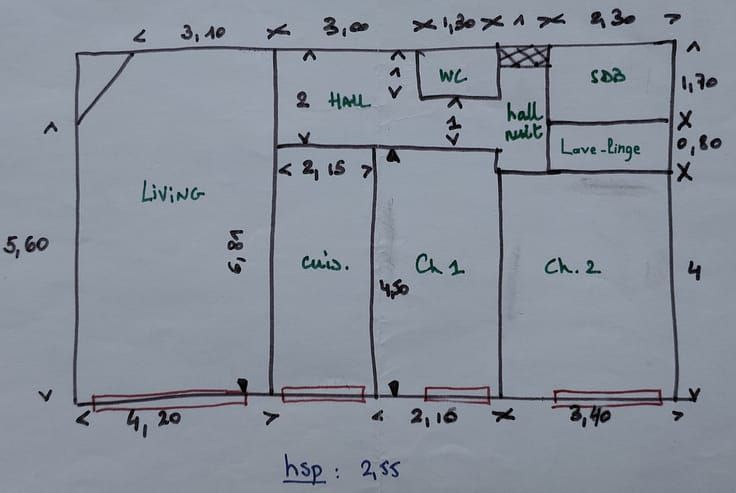 < 3,10 × 3,00 × 1,30 × 1 × 2,30 >
WC
SDB
1
1,70
2
HALL
hall
nuit
1
Lave-linge
0,80
< 2,15 >
LiViNG
5,60
6,81
cuis.
Ch 1
Ch. 2
4
4,50
< 4,20 > < 2,10 × 3,40 >
hsp : 2,55